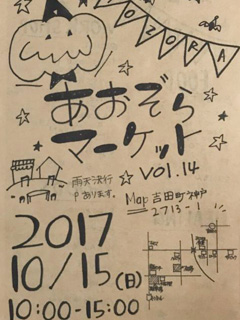 AOZORA
あおぞら
マーケット
vol.14
雨天決行
Pあります。
Map 吉田町神戸
2713-1
2017
10/15(日)
10:00-15:00